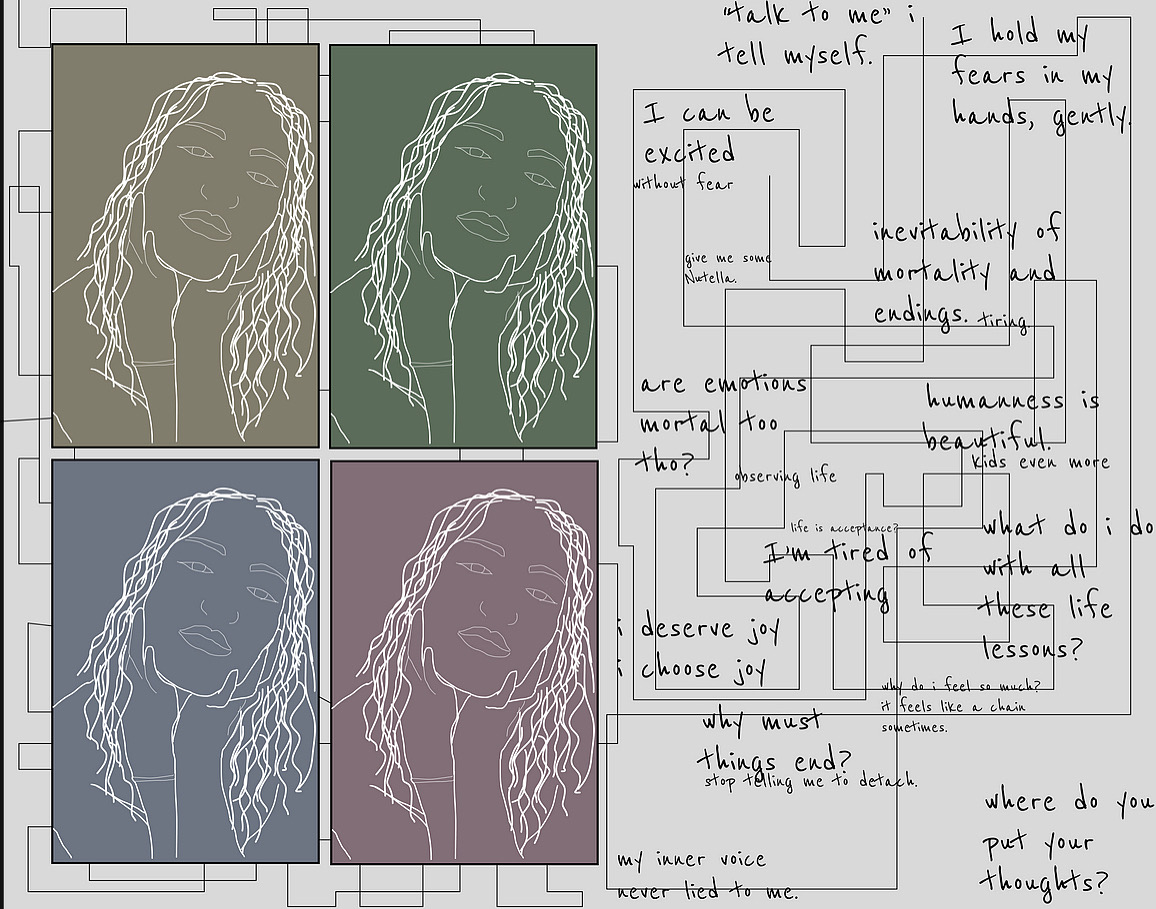 "talk to me" i
tell myself.
I hold my
fears in my
hands, gently.
I can be
excited
without fear
inevitability of
mortality and
endings. tiring.
give me some
Nutella.
are emotions
mortal too
tho?
humanness is
beautiful.
kids even more
observing life
life is acceptance?
I'm tired of
accepting
what do i do
with all
these life
lessons?
i deserve joy
i choose joy
why do i feel so much?
it feels like a chain
sometimes.
why must
things end?
stop telling me to detach.
where do you
put your
thoughts?
my inner voice
never lied to me.